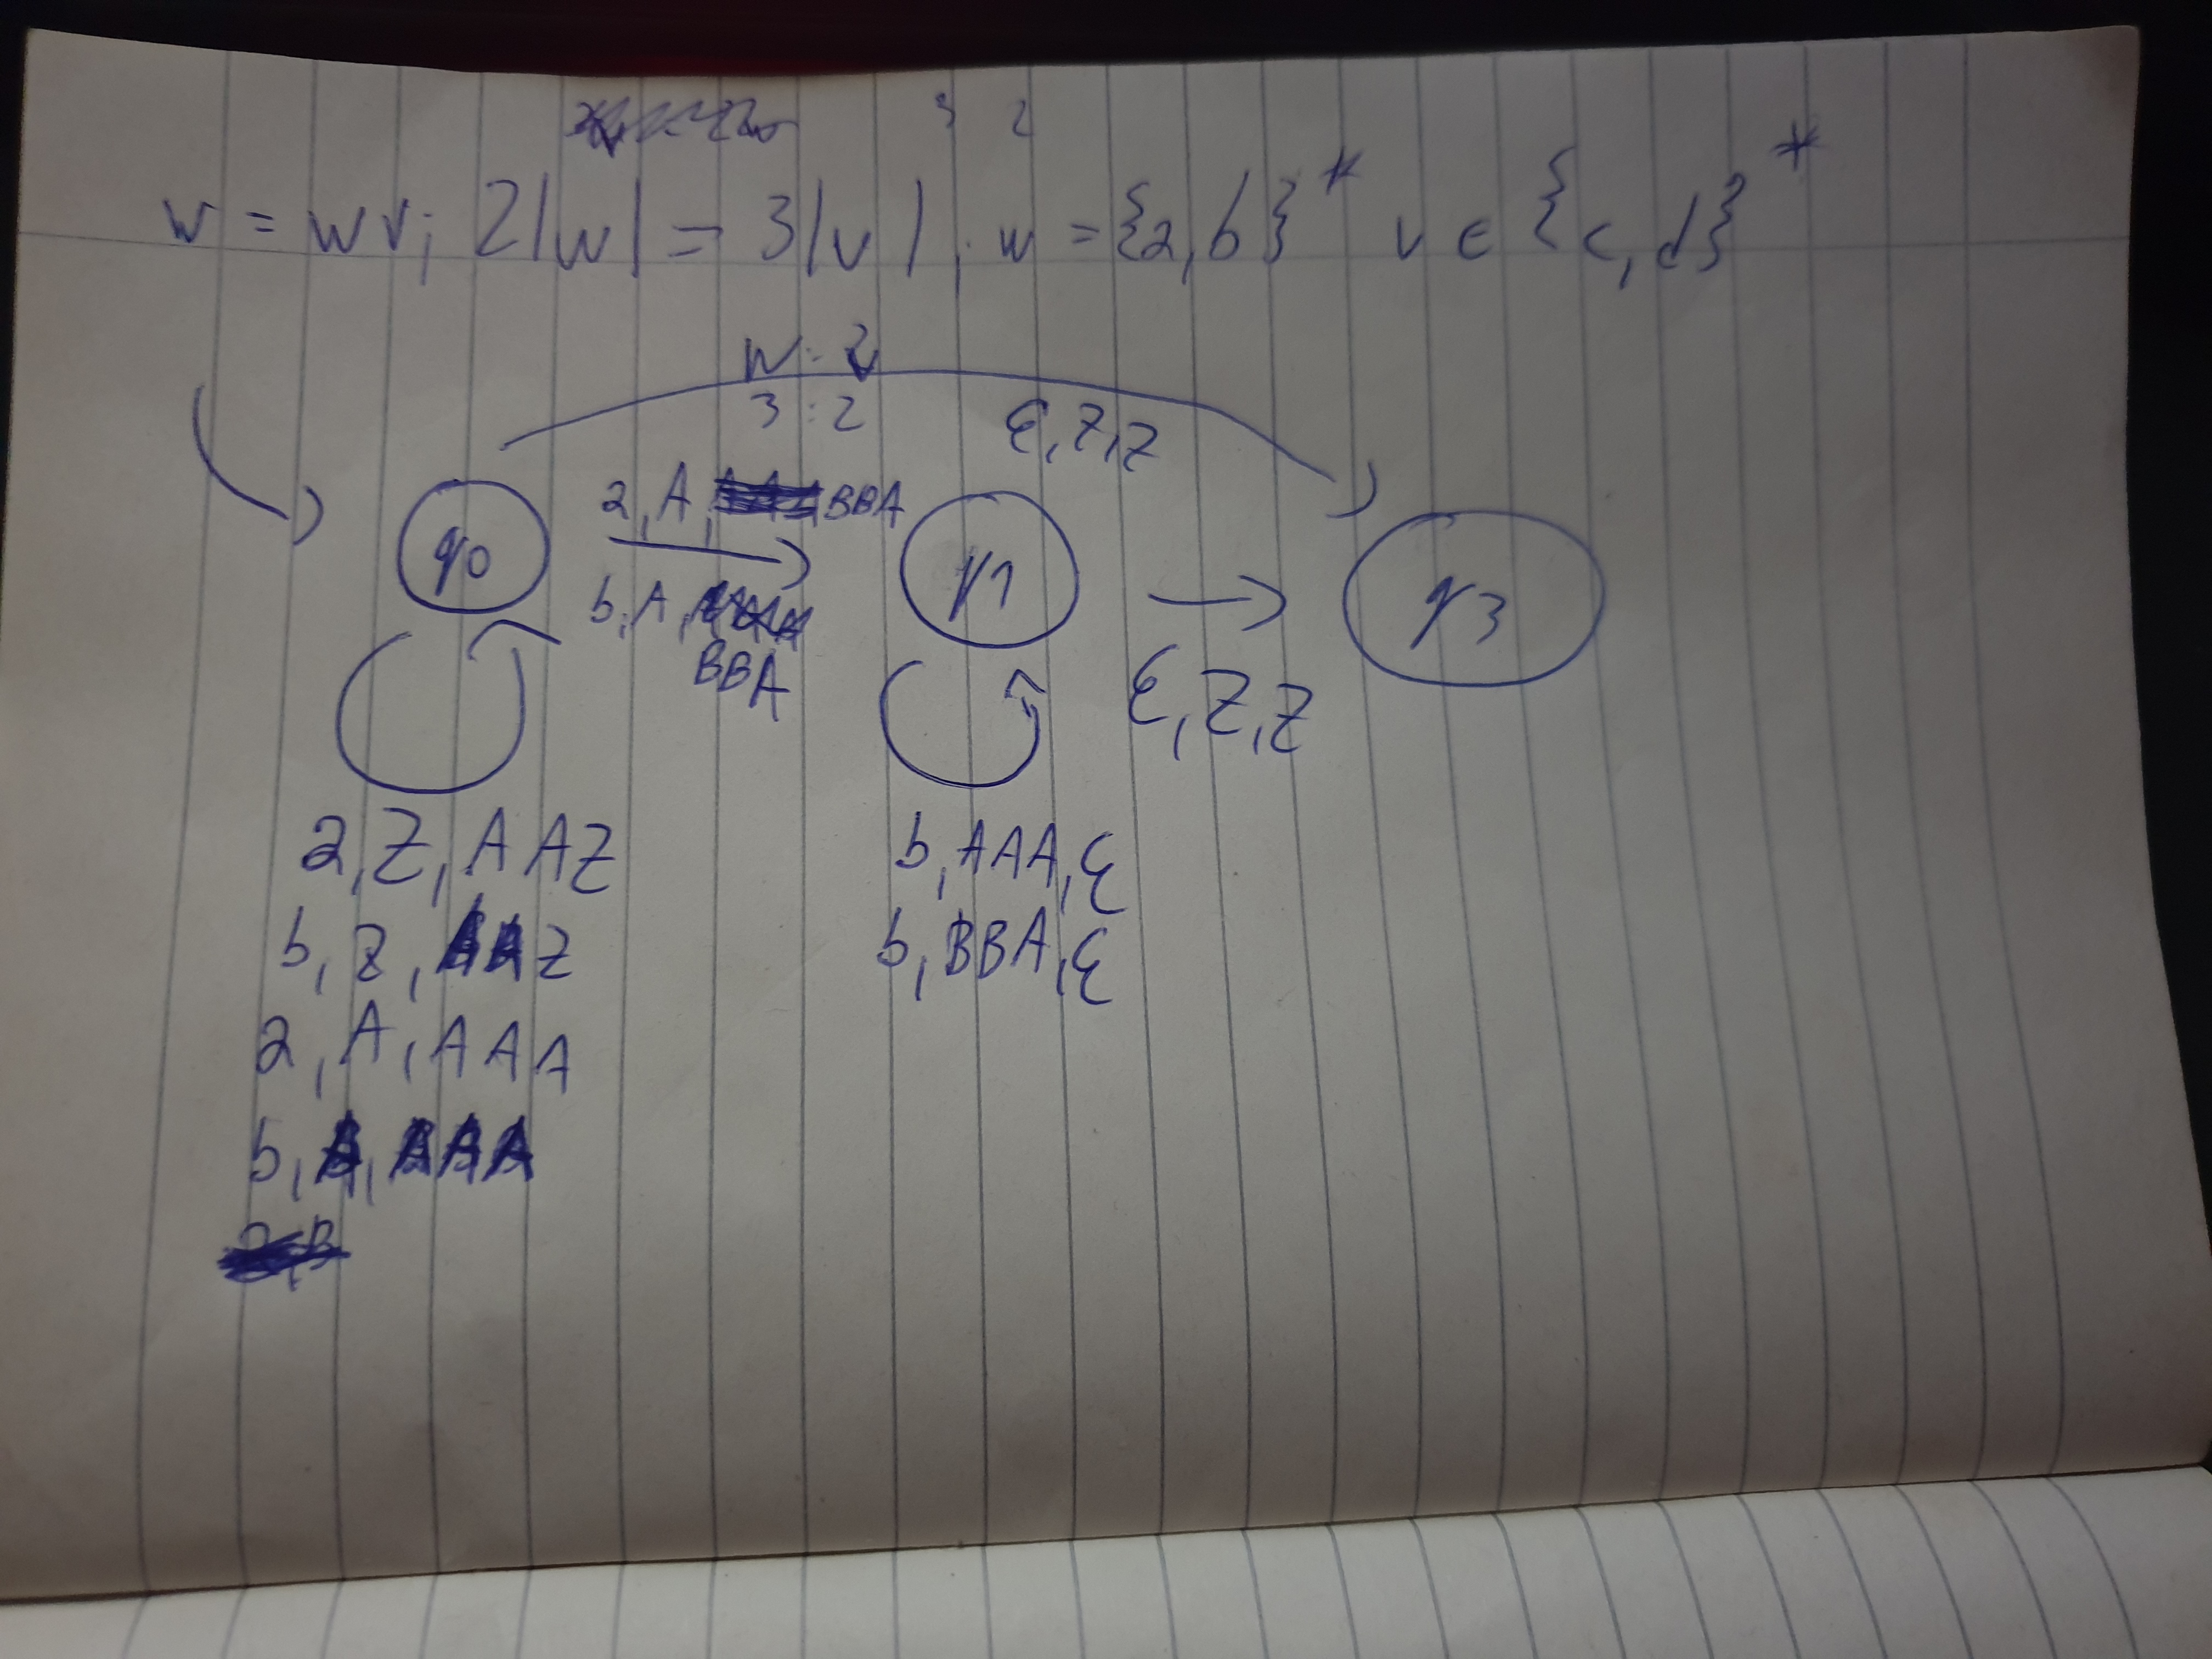 3 2
w = wv; 2|w| = 3|v|, w = {a,b}* v ∈ {c,d}*
w : v
3 : 2
ε, z, z
a, A, BBA
b, A,
BBA
q0
q1
q3
ε, Z, Z
a, Z, AAZ
b, Z, AAZ
a, A, AAA
b, A, AAA
b, AAA, ε
b, BBA, ε